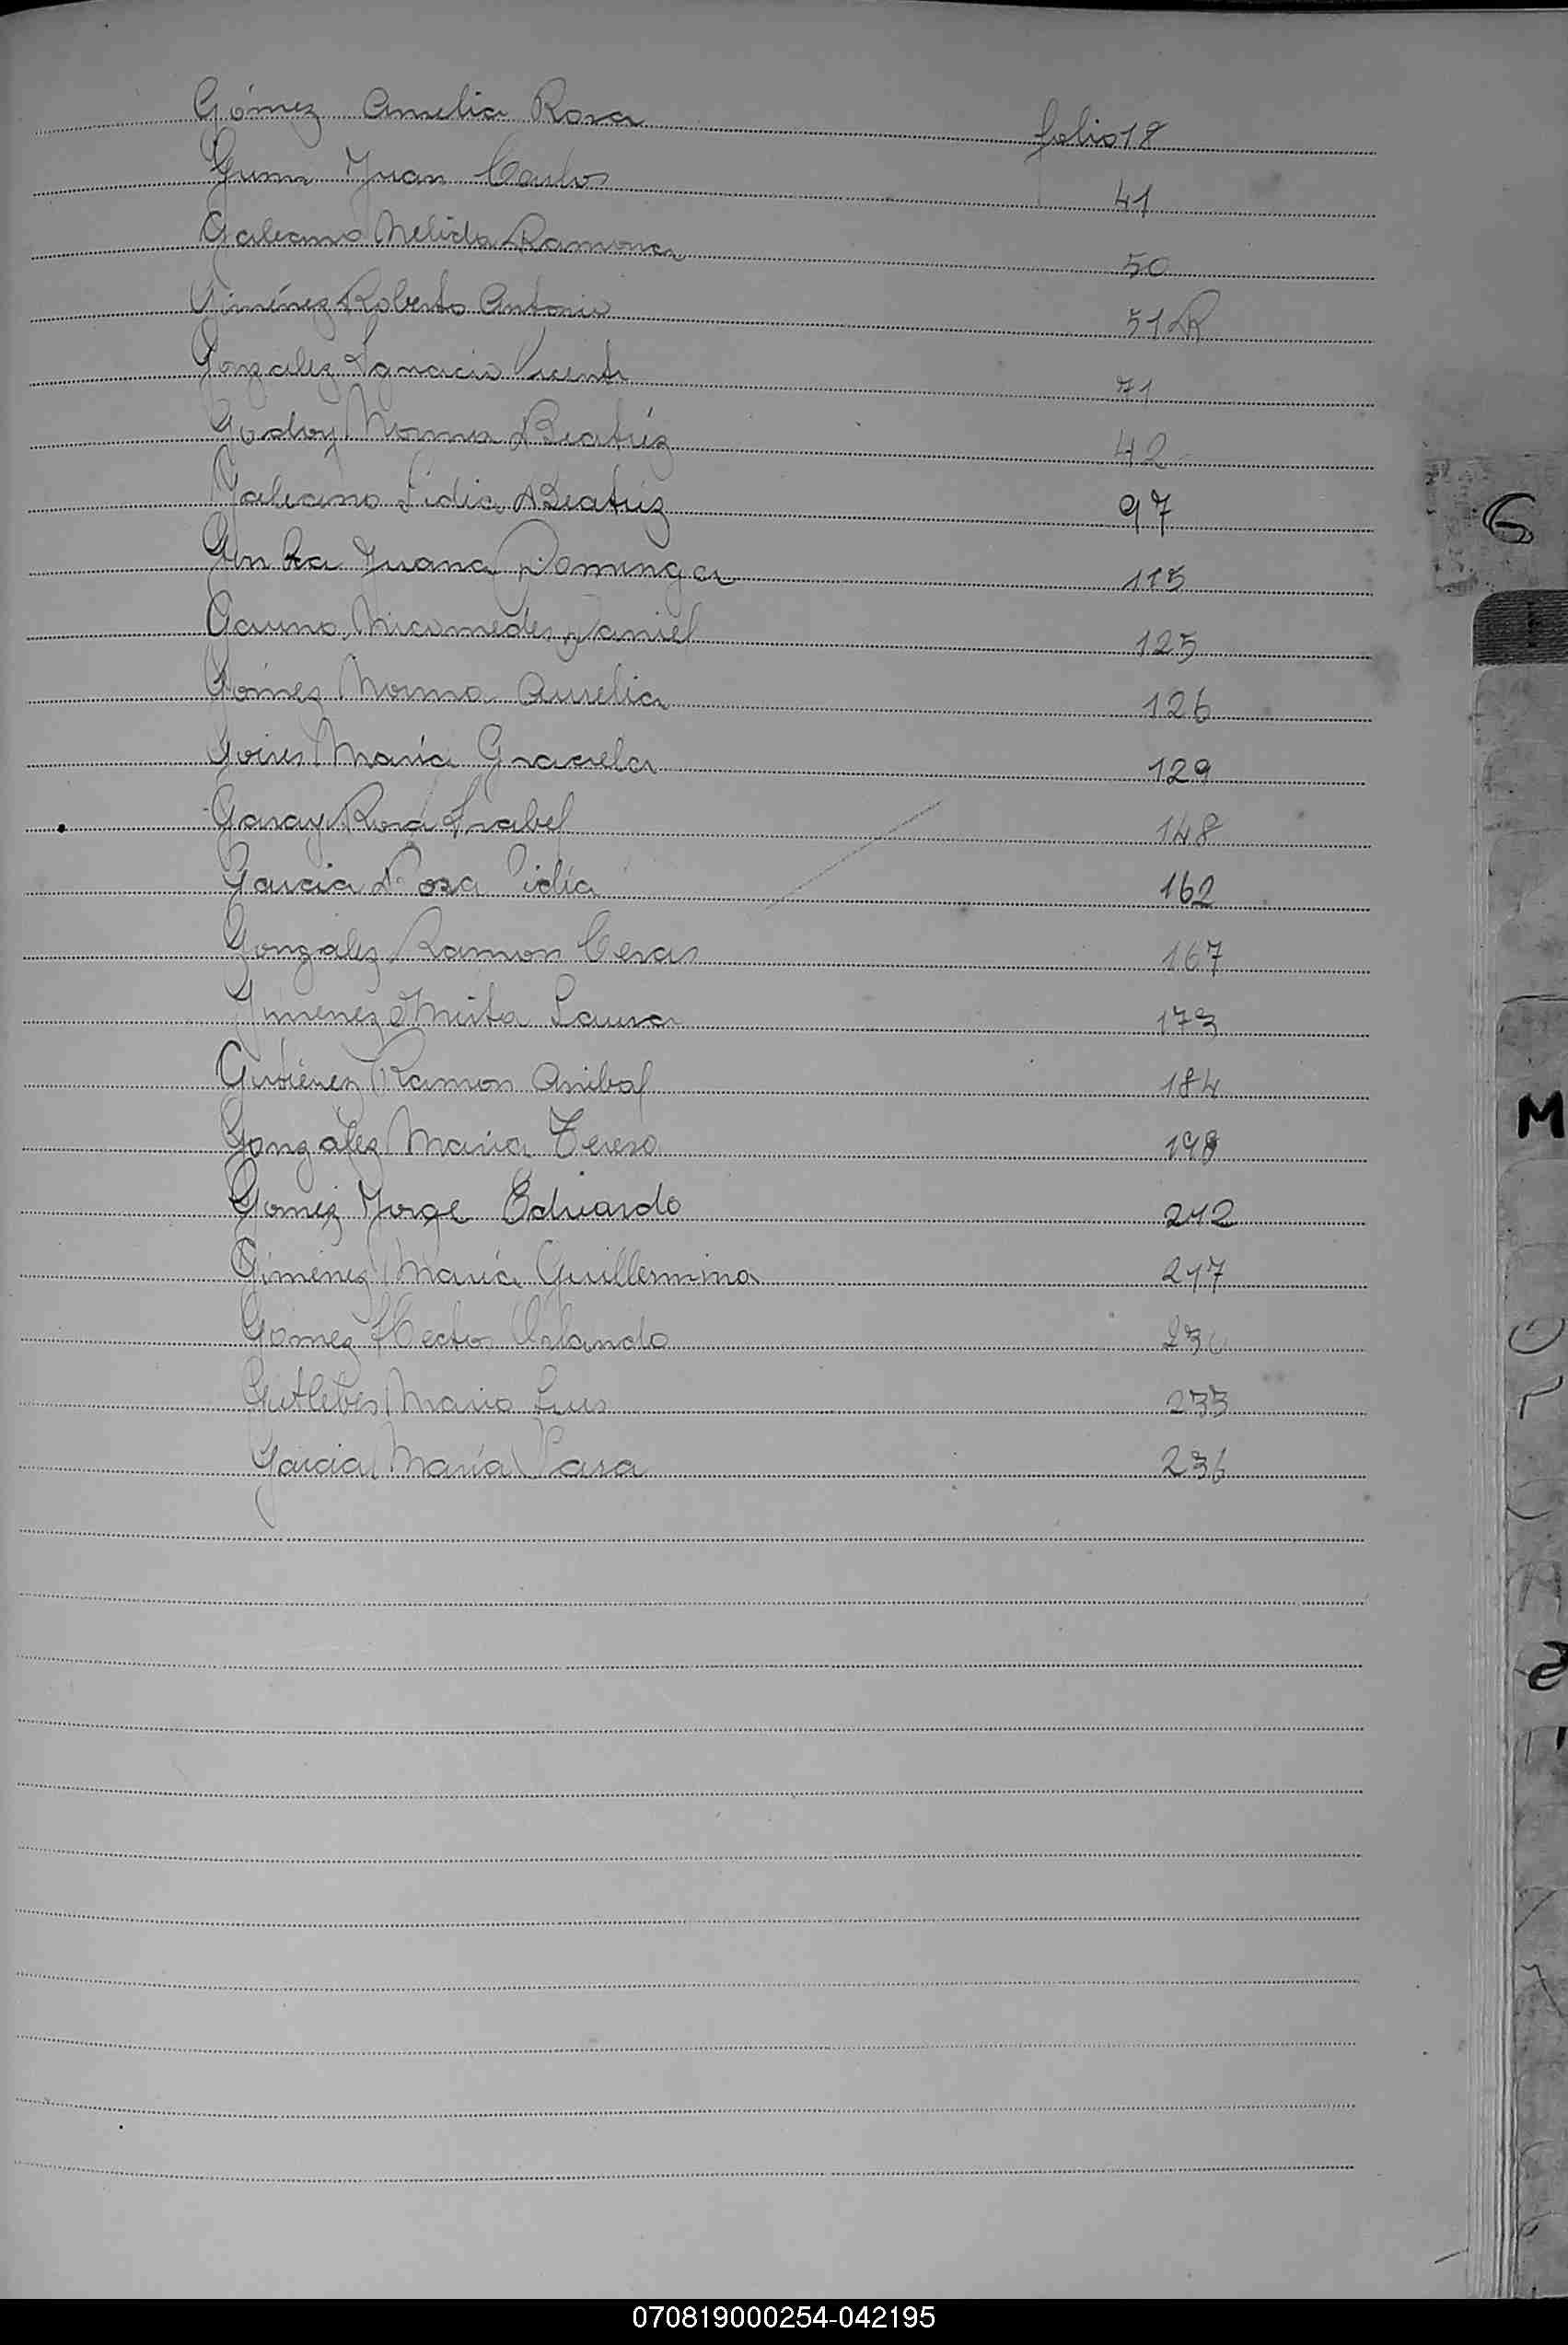 Gómez Amelia Rosa folio 18
Juan Carlos 41
Galeano Nelida Ramona 50
Giménez Roberto Antonio 51 R
Gonzalez Ignacio Vicente 71
Godoy Norma Beatriz 42
Galeano Lidia Beatriz 97
Juana Dominga 115
Gauno Nicomedes Daniel 125
Gómez Norma Aurelia 126
Goires María Graciela 129
Garay Rosa Isabel 148
Garcia Rosa Lidia 162
González Ramon Ceras 167
Gimenez Mirta Laura 173
Ramon Anibal 184
González Maria Teresa 198
Gomez Jorge Eduardo 212
Giménez María Guillermina 217
Gómez Hector Orlando
Mario Luis 233
Garcia María Sara 236
G
M
070819000254-042195